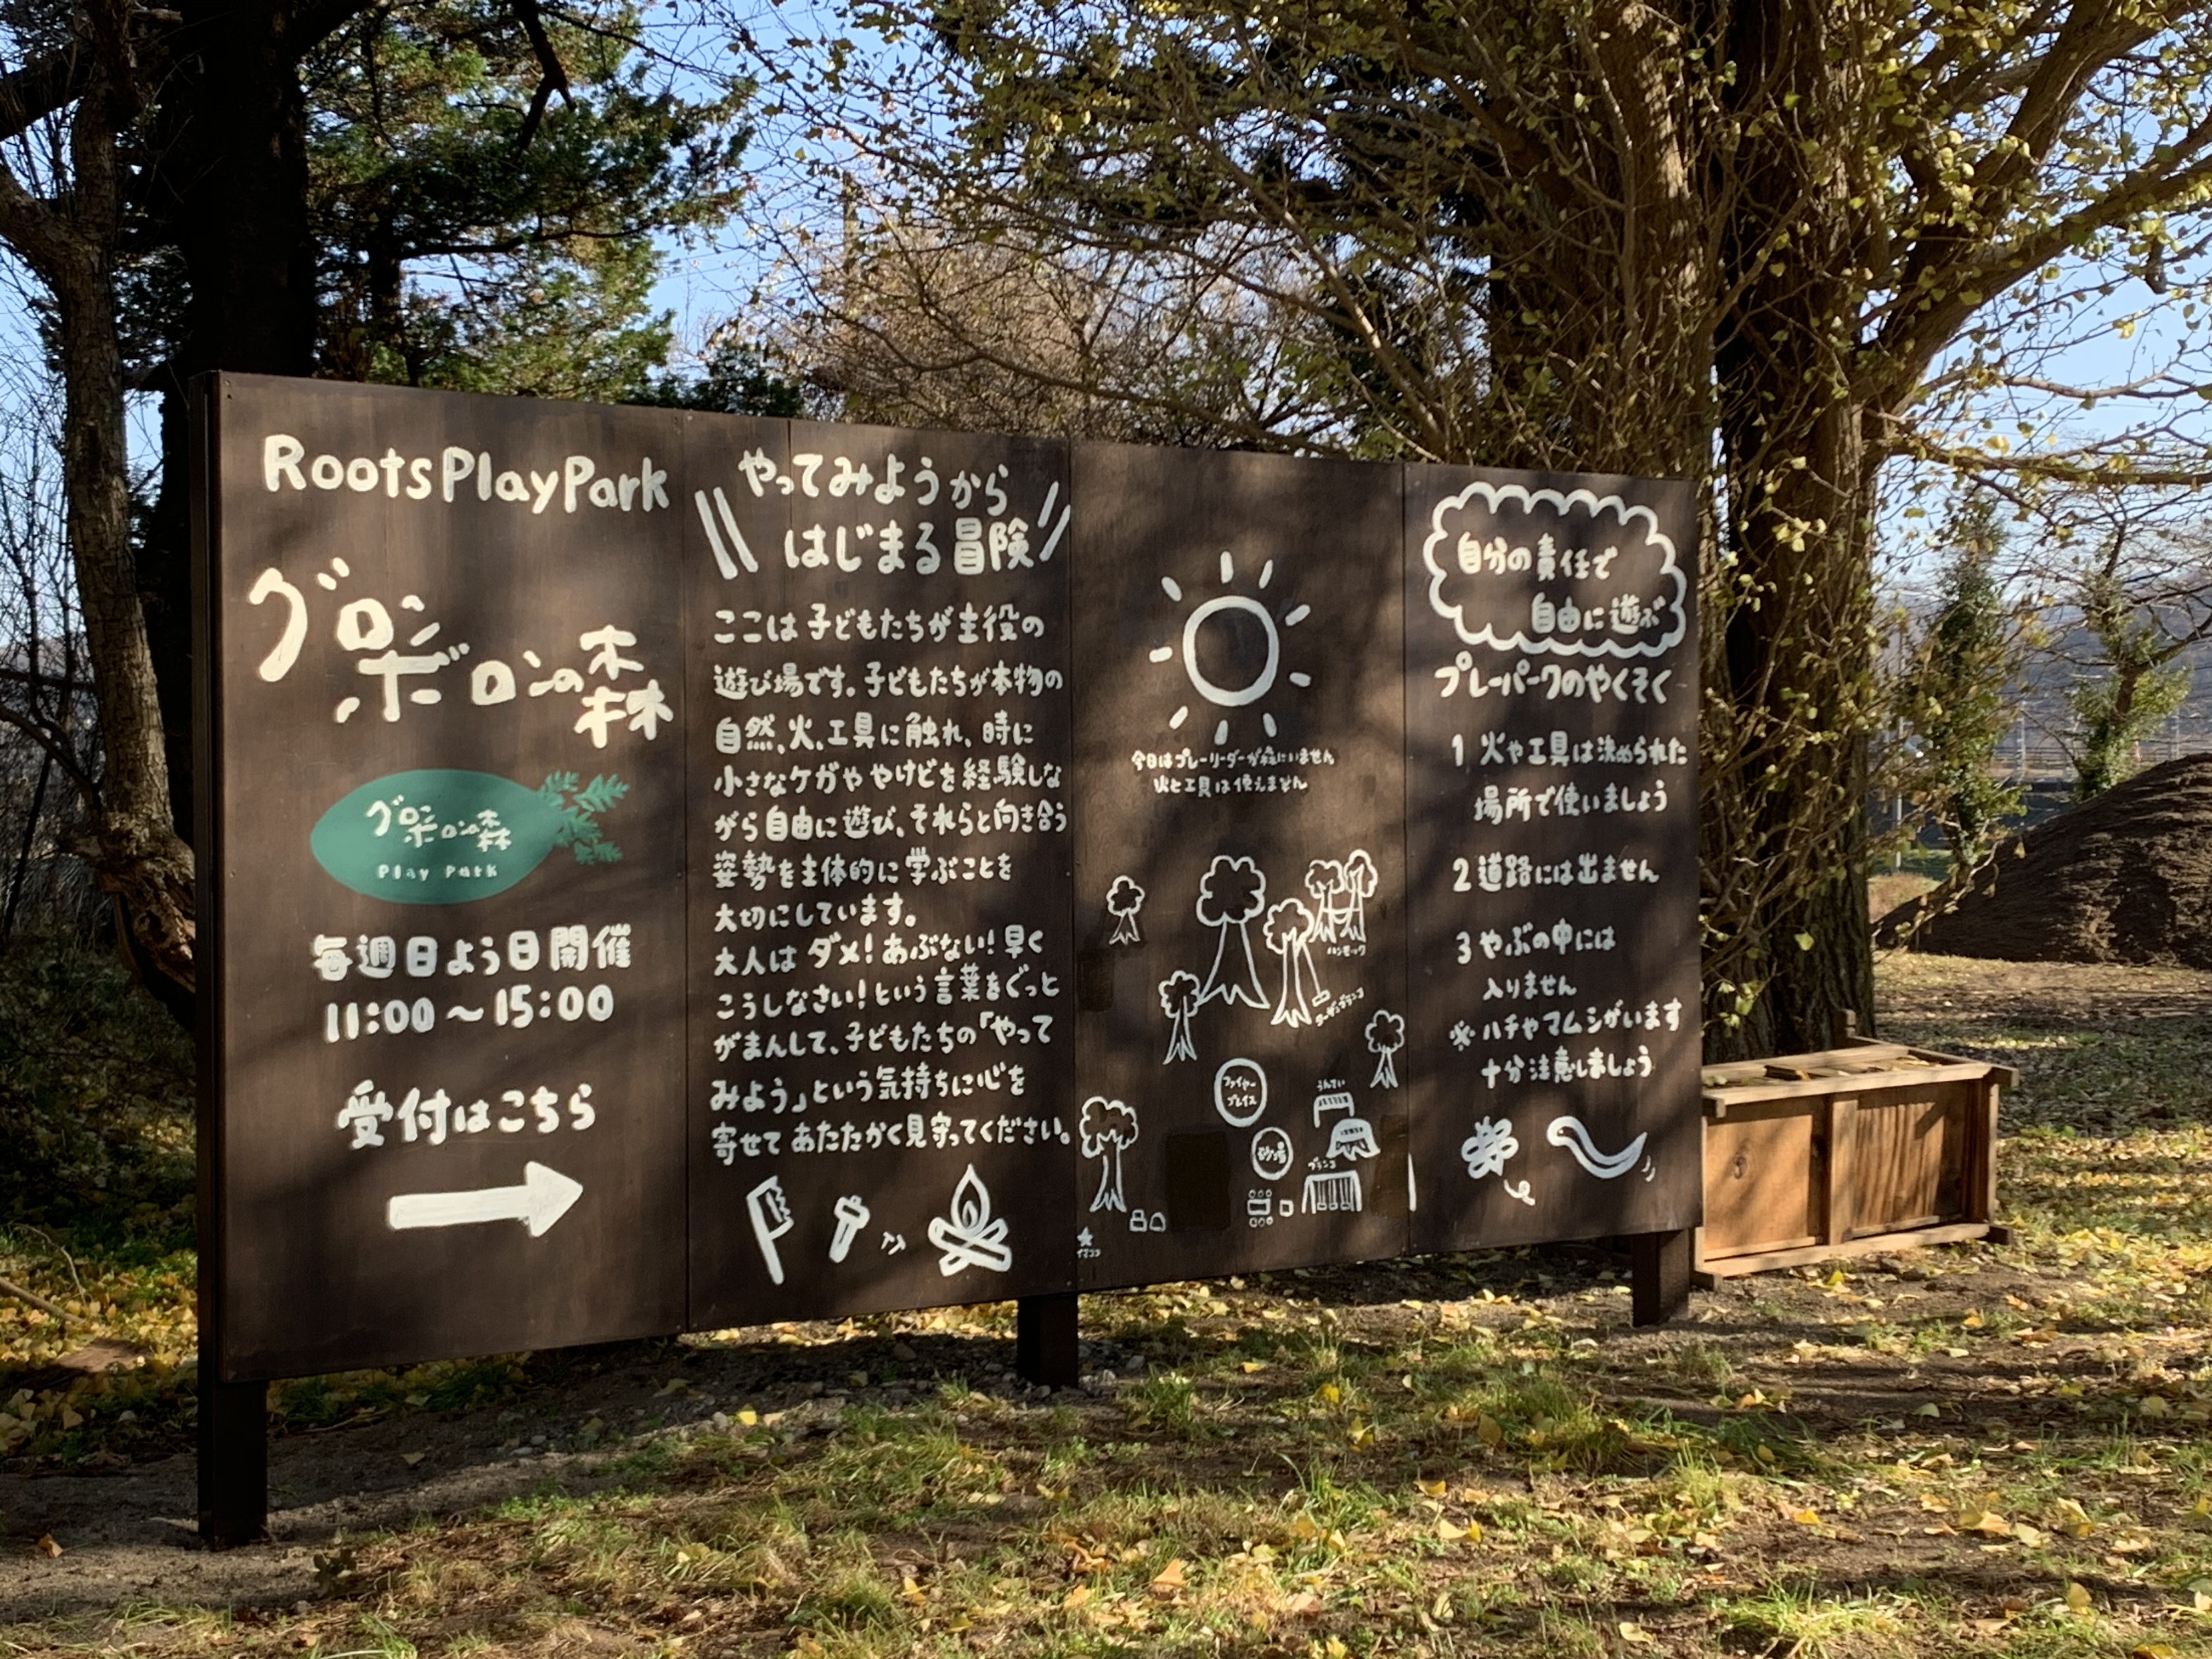 RootsPlayPark
グロンボロンの森
グロンボロンの森
Play Park
毎週日よう日開催
11:00～15:00
受付はこちら
やってみようから
はじまる冒険
ここは子どもたちが主役の
遊び場です。子どもたちが本物の
自然、火、工具に触れ、時に
小さなケガややけどを経験しな
がら自由に遊び、それらと向き合う
姿勢を主体的に学ぶことを
大切にしています。
大人はダメ！あぶない！早く
こうしなさい！という言葉をぐっと
がまんして、子どもたちの「やって
みよう」という気持ちに心を
寄せてあたたかく見守ってください。
今日はプレーリーダーが森にいません
火と工具は使えません
ハンモック
ターザンブランコ
ファイヤー
プレイス
うんてい
砂場
ブランコ
イマココ
自分の責任で
自由に遊ぶ
プレーパークのやくそく
1 火や工具は決められた
場所で使いましょう
2 道路には出ません
3 やぶの中には
入りません
※ハチやマムシがいます
十分注意しましょう